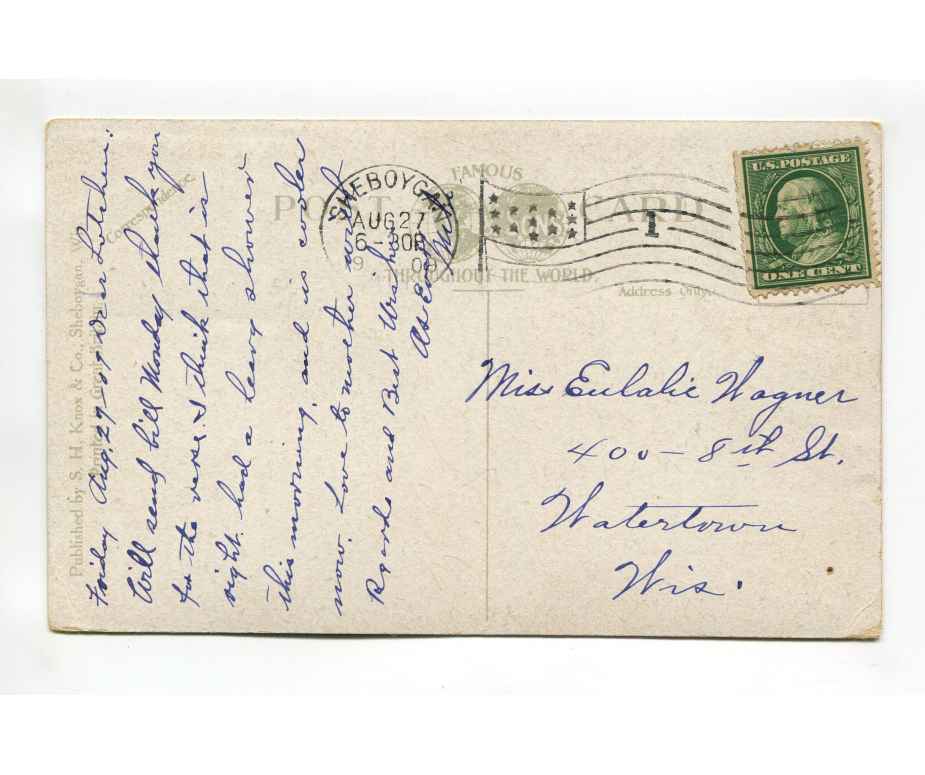 Published by S. H. Knox & Co., Sheboygan,
Correspondence.
POST CARD
FAMOUS
THROUGHOUT THE WORLD.
Address Only.
SHEBOYGAN
AUG 27
6-30P
1
U.S. POSTAGE
ONE CENT
Friday Aug. 27 - 09 Dear
Will send bill Monday thank you
for the verse. I think that is
right. had a heavy shower
this morning, and is cooler
now. Love to mother
Regards and Best Wishes
Miss Eulalie Wagner
400 - 8th St.
Watertown
Wis.